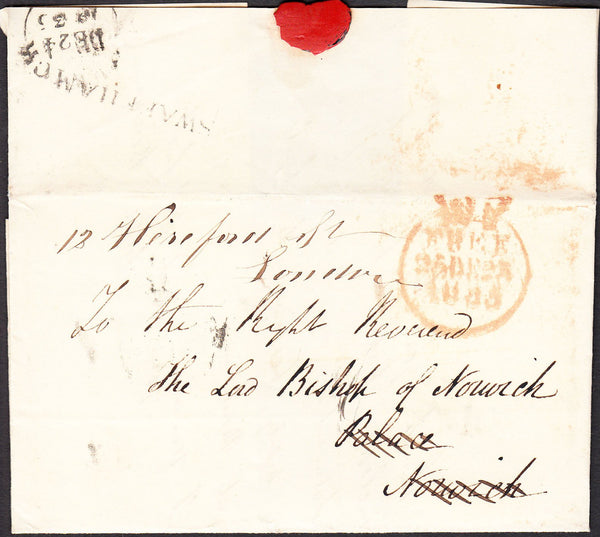 DE 24
SWAFFHAM
12 Hereford St
London
To the Right Reverend
The Lord Bishop of Norwich
Palace
Norwich
FREE
25 DE 25